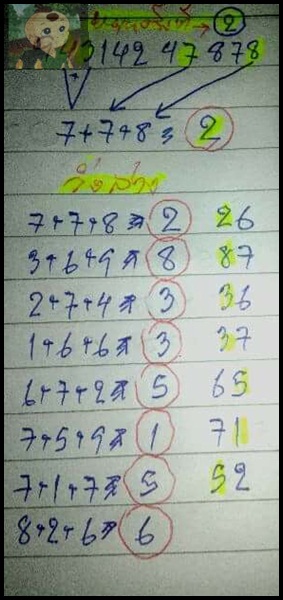 → 2
43142 47878
+
7+7+8 = 2
วิ่งล่าง
7+7+8 = 2 26
3+6+9 = 8 87
2+7+4 = 3 36
1+6+6 = 3 37
6+7+2 = 5 65
7+5+9 = 1 71
7+1+7 = 5 52
8+2+6 = 6